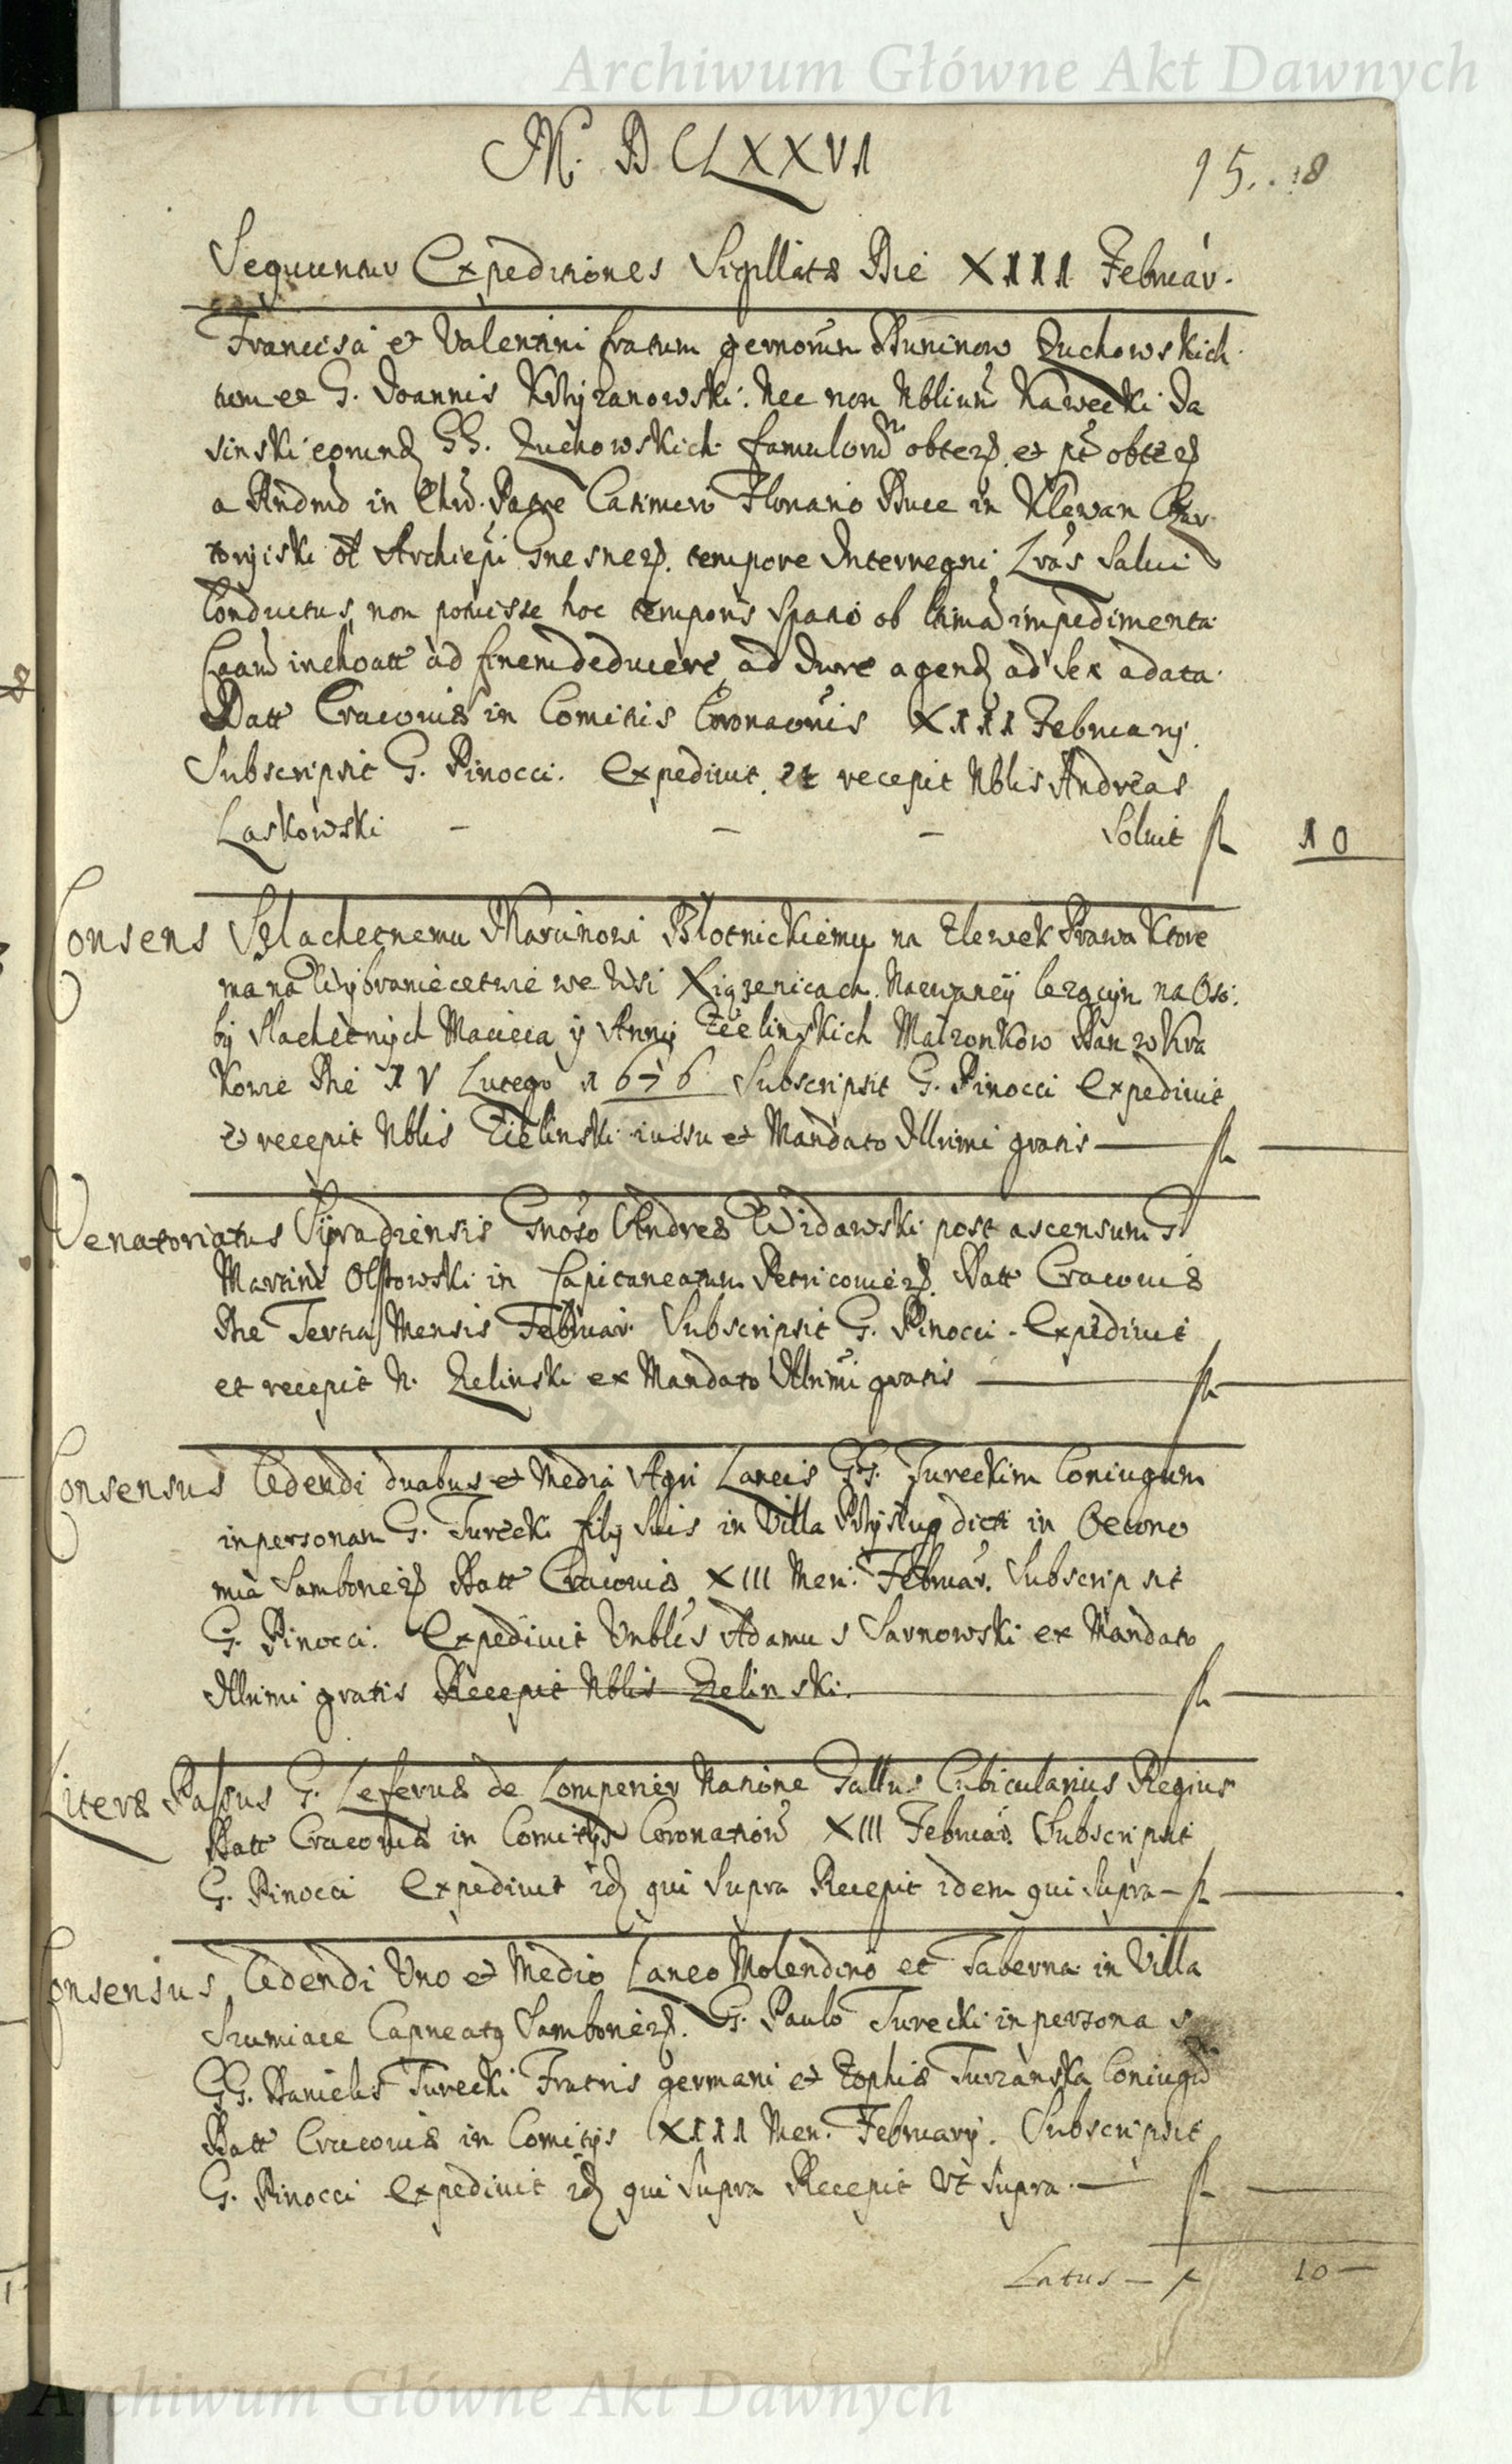 Archiwum Główne Akt Dawnych
M. DCLXXVI
15. . 18
Sequuntur Expeditiones Sigillatæ Die XIII Februar.
Francisci et Valentini fratrum germorum Duninow Zuchowskich
tum et G. Joannis Krzyzanowski. Nec non Nblium Nawecki Ja
sinski eorund GG. Zuchowskich famulorum obten. et pt obten
a Rndmo in Chro. Patre Casimiro Floriano Duce in Klewan Czar
toryiski olt Archiepi Gnesnen. tempore Interregni Lras Salui
Conductus, non potuisse hoc temporis Spatio ob ltima impedimenta
Caam inchoatt ad finem deducere ad Jure agend ad sex a data.
Datt Cracouiæ in Comitis Coronaonis XIII February.
Subscripsit G. Pinocci. Expediuit et recepit Nblis Andreas
Laskowski — — — Soluit fl 10
Consens Szlachetnemu Marcinowi Blotnickiemu na Zlewek Prawa Ktore
ma na Wybraniecctwie we Wsi Xiązenicach Nazwaney lezącym na Oso:
by Slachetnych Macieia y Anny Zielinskich Małzonkow Dan w Kra
kowie Die IV Lutego 1676 Subscripsit G. Pinocci Expediuit
et recepit Nblis Zielinski iussu et Mandato Illrimi gratis — fl —
Venatoriatus Syradiensis Gnoso Andreæ Widawski post ascensum G
Martini Olstowski in Capitaneatum Petricouien. Datt Cracouiæ
Die Tertia Mensis Februar. Subscripsit G. Pinocci. Expediuit
et recepit N. Zelinski ex Mandato Illrimi gratis — fl —
Consensus Cedendi duabus et Media Agri Laneis GG. Tureckim Coniugum
in personam G. Turecki fily Suis in Villa Przystup dicti in Oecono
mia Samborien Datt Cracouiæ XIII Men. Februar. Subscripsit
G. Pinocci. Expediuit Vnblis Adamus Sarnowski ex Mandato
Illrimi gratis Recepit Nblis Zelinski. — fl —
Literæ Passus G. Leferuæ de Lomperier Natione Gallus Cubicularius Regius
Datt Cracouiæ in Comitys Coronation XIII Februar. Subscripsit
G. Pinocci Expediuit id qui supra Recepit idem qui supra — fl —
Consensus Cedendi Uno et Medio Laneo Molendino et Taberna in Villa
Szumiace Capneatq Samborien. G. Paulo Turecki in persona s
GG. Danielis Turecki Fratris germani et Zophiæ Turzanska Coniugu
Datt Cracouiæ in Comitys XIII Men. February. Subscripsit
G. Pinocci Expediuit id qui supra Recepit vt supra. — fl —
Latus — f 10 —
Archiwum Główne Akt Dawnych